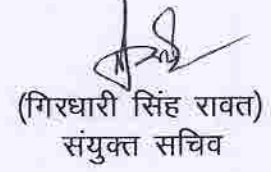 (गिरधारी सिंह रावत)
संयुक्त सचिव